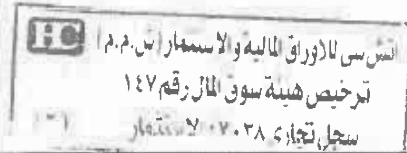 HC
اتش سى للاوراق المالية والاستثمار (ش.م.م)
ترخيص هيئة سوق المال رقم ١٤٧
سجل تجارى ٠٢٨ لاستثمار